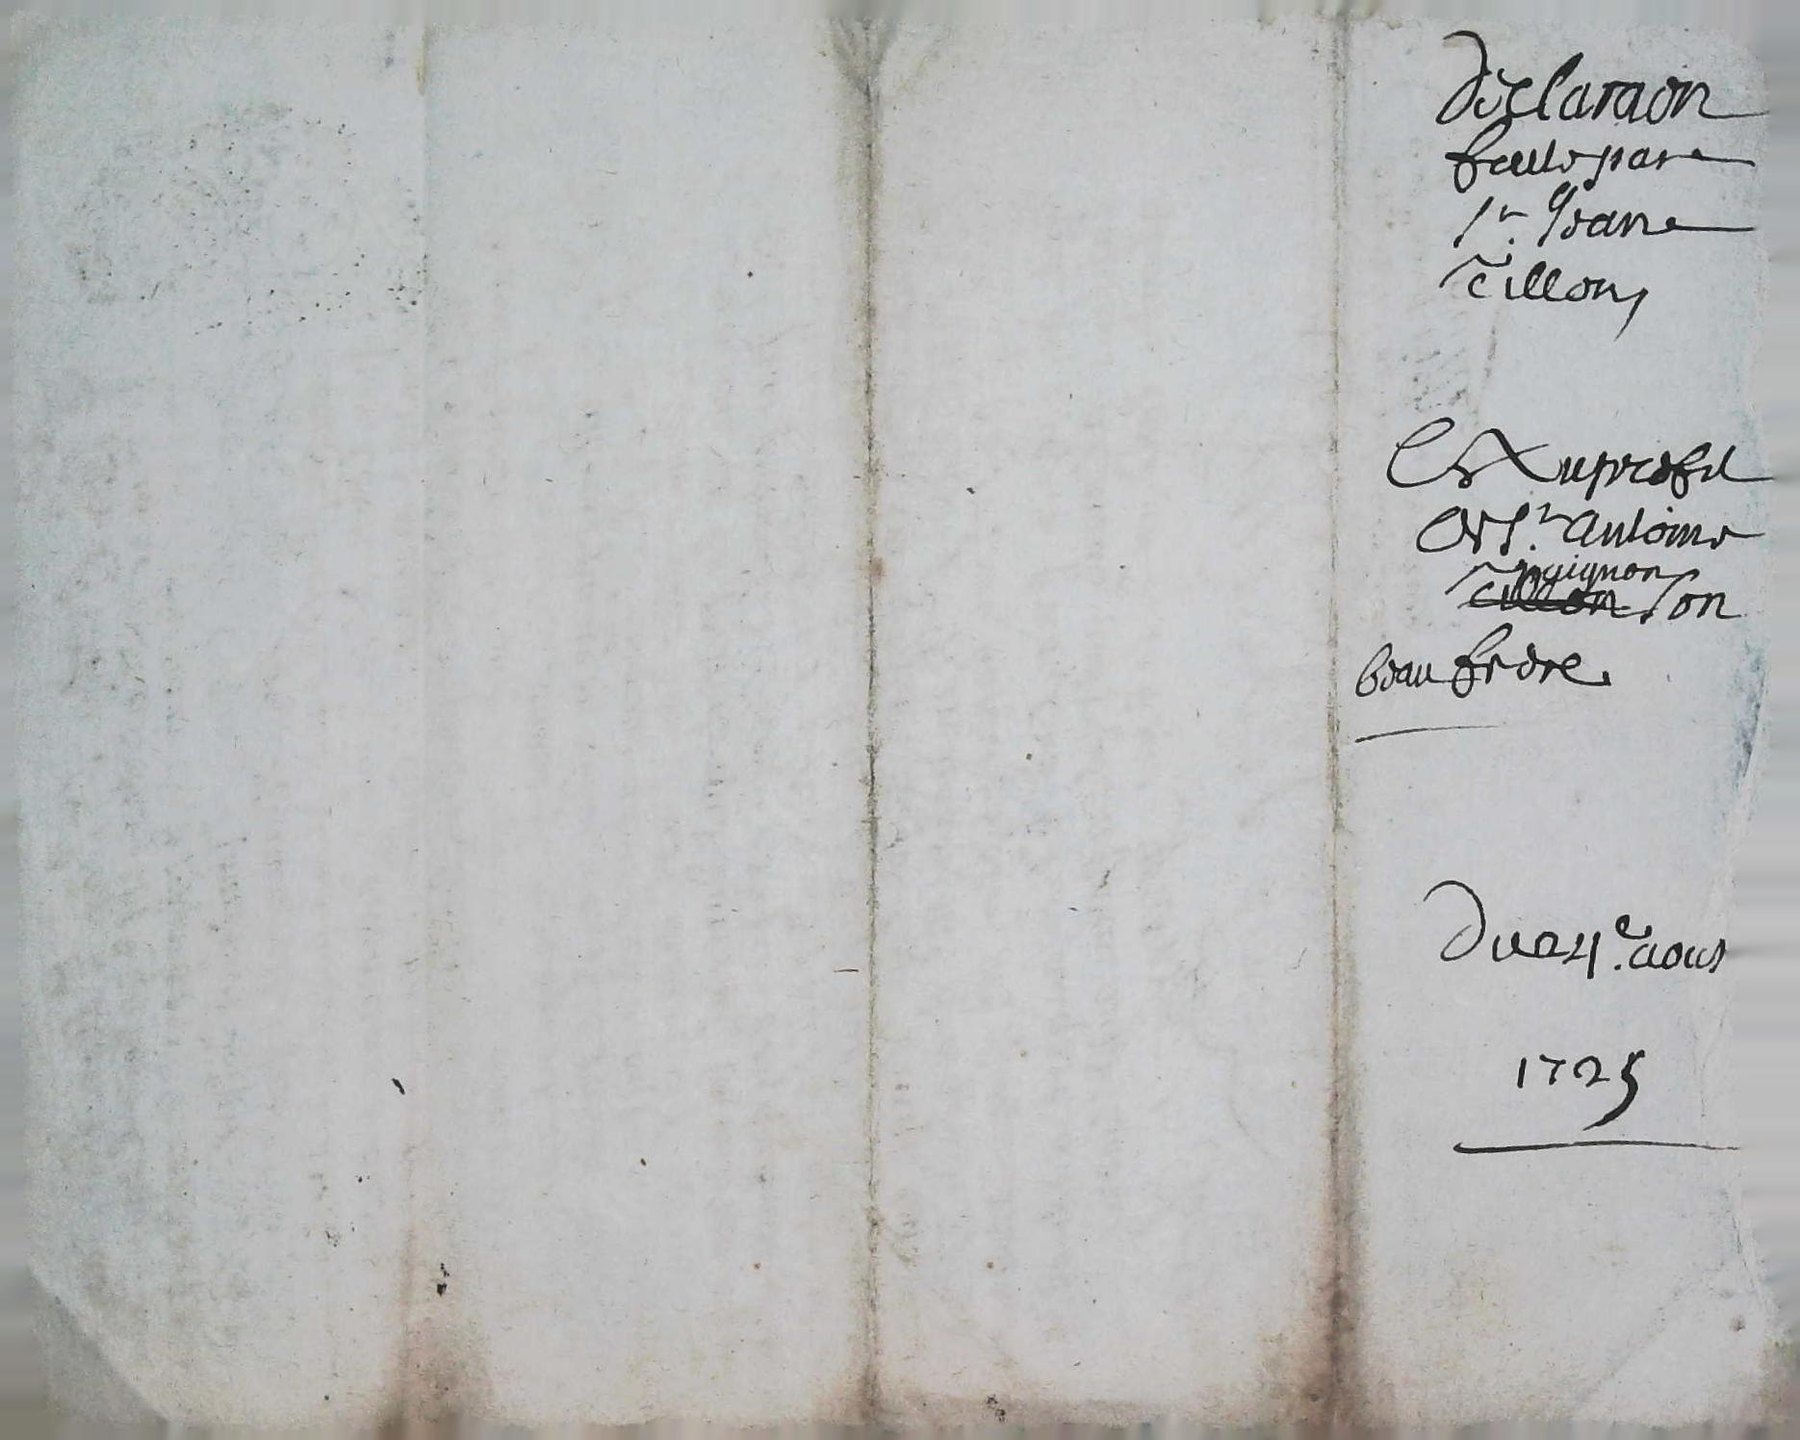 declaraon
faitte par
Sr. Jean
Tillon
Et Au profit
de Sr. Antoine
Tillon guignon son
beau frere.
Du 24e. aout
1725